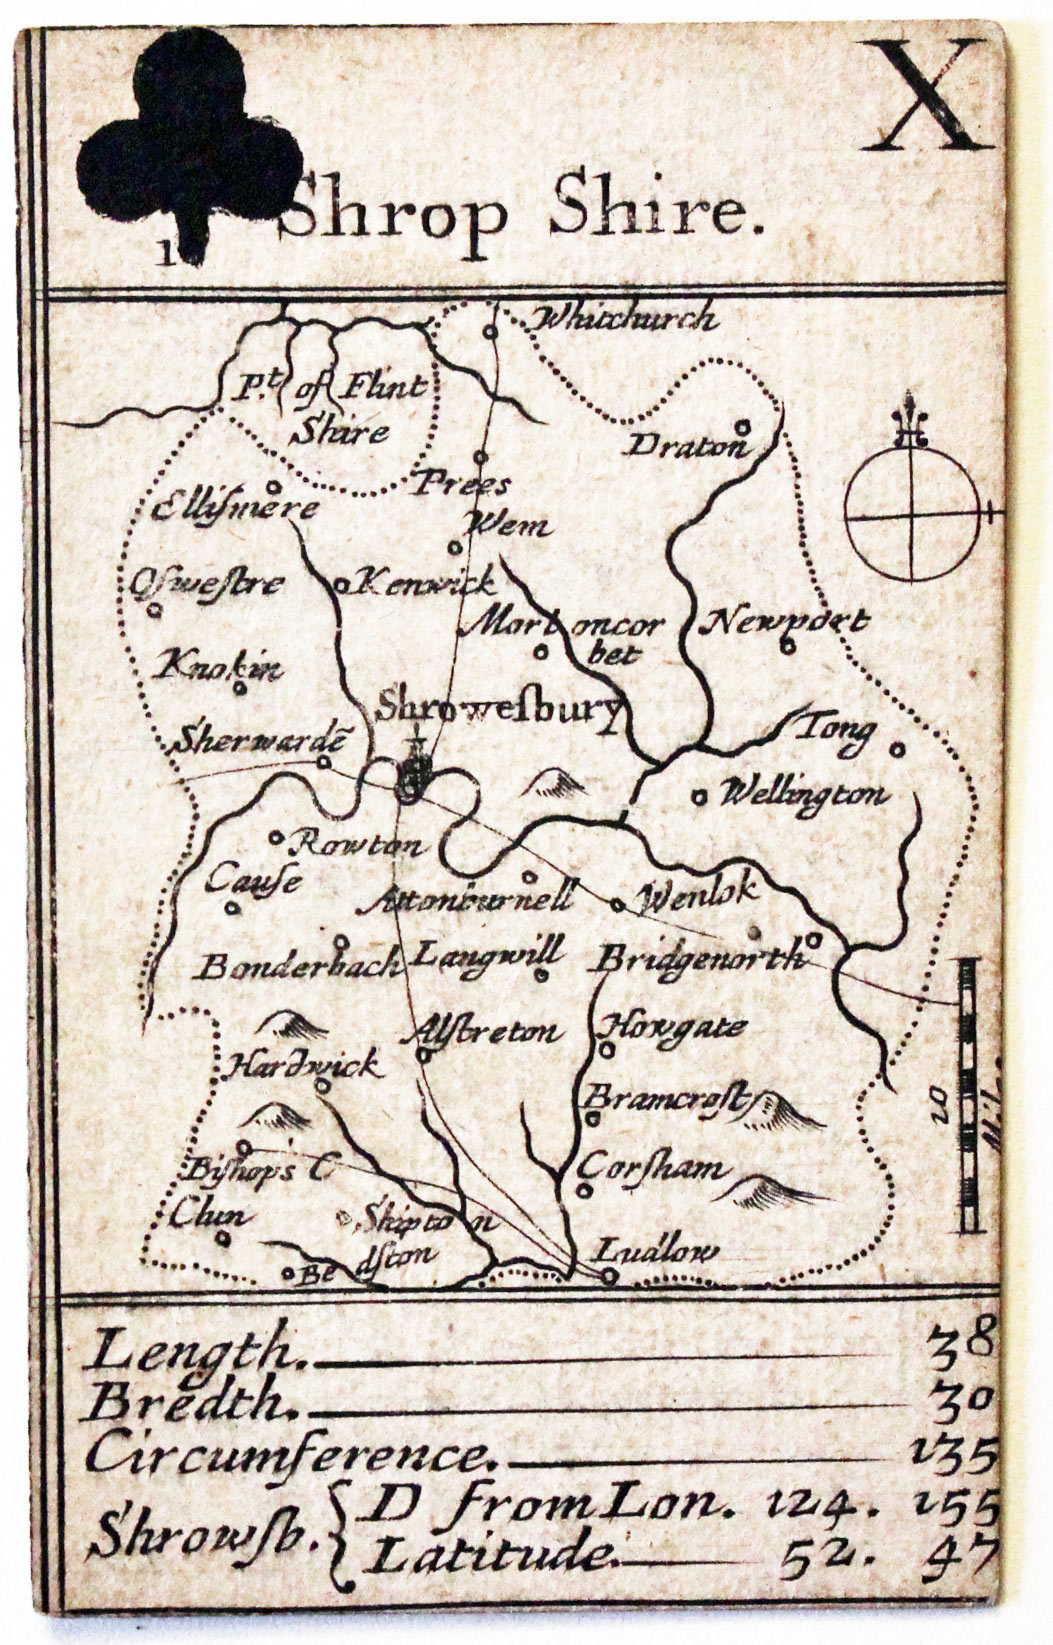 X
1
Shrop Shire.
Whitchurch
P.t of Flint
Shire
Draton
Prees
Elliſmere
Wem
Oſweſtre
Kenwick
Mort oncor
bet
Newport
Knokin
Shroweſbury
Sherwardē
Tong
Wellington
Rowton
Cauſe
Attonburnell
Wenlok
Bonderbach
Langwill
Bridgenorth
Alſtreton
Howgate
Hardwick
Bramcroſt
20
Biſhops C
Corſham
Clun
Shipto n
Be dſton
Ludlow
Length. 38
Bredth. 30
Circumference. 135
Shrowſb. D from Lon. 124. 155
Latitude. 52. 47